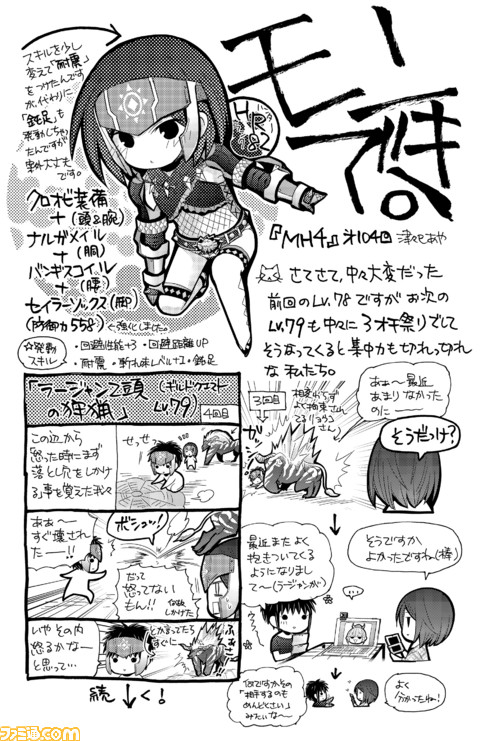 モンスキ
です。
『MH4』オ104回 津々巳あや
スキルを少し
変えて「耐震」
をつけたんです
が、代わりに
「鈍足」も
発動しちゃっ
たんですが
案外大丈夫
です。
HR
クロオビ装備
+(頭&腕)
ナルガメイル
+(胴)
バンギスコイル
+(腰)
セイラーソックス(脚)
(防御力558) ←強化しました。
☆発動
スキル
・回避性能+3 ・回避距離UP
・耐震 ・斬れ味レベル+1 ・鈍足
さてさて、中々大変だった
前回のLv.78ですがお次の
Lv.79も中々に3オチ祭りでして
そうなってくると集中力も切れっ切れ
な私たち。
「ラージャン2頭
の狩猟」
(ギルドクエスト
Lv79)
4回目
この辺から
「怒った時にまず
落とし穴をしかけ
る」事を覚えた我々
せっせっ
ああ〜
すぐ壊され
たー!!
ボシュッ!
だって
怒ってない
もん!!
いやその内
怒るかなー
と思って…
とかまってたら
すぐに
続く!
3回目
相変わらず
よく拘束さん
てるリョウコ
さん
ガシッ
ああ〜最近
あまりなかった
のにー
そうだっけ?
最近またよく
抱きついてくる
ようになりまし
てへ(ラージャンが)
そうですか、
よかったですね(棒)
何ですかその
「相手するのも
めんどくさい」
みたいなー
よく
分かったね!
ファミ通.com